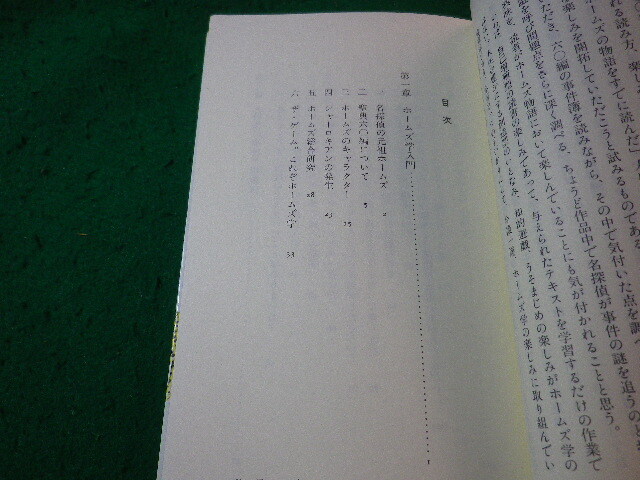 れる読み方、楽し
ホームズの物語をすでに読んだ
楽しみを開拓していただこうと試みるものである。
ただき、六〇編の事件簿を読みながら、その中で気付いた点を調べ
を呼び問題点をさらに深く調べる、ちょうど作品中で名探偵が事件の謎を追うのと
読者がホームズ物語において楽しんでいることにも気が付かれることと思う。
の読書の楽しみであって、与えられたテキストを学習するだけの作業で
知的遊戯、うそまじめの楽しみがホームズ学の
ホームズ学の楽しみに取り組んでい
目次
第一章 ホームズ学入門 1
一 名探偵の元祖ホームズ 2
二 聖典六〇編について 5
三 ホームズのキャラクター 15
四 シャーロキアンの発生 23
五 ホームズ総合研究 28
六 ザ・ゲーム、これがホームズ学 33